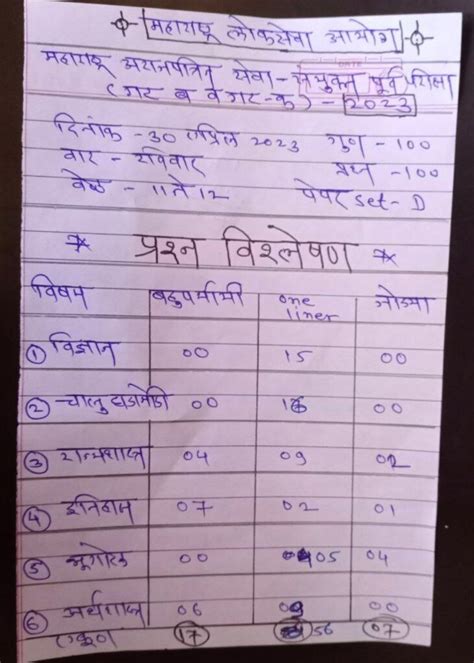 महाराष्ट्र लोकसेवा आयोग
महाराष्ट्र अराजपत्रित सेवा - संयुक्त पूर्व परीक्षा
(गट ब व गट-क) - 2023
दिनांक - 30 एप्रिल 2023 गुण - 100
वार - रविवार प्रश्न - 100
वेळ - 11 ते 12 पेपर set - D
* प्रश्न विश्लेषण *
विषय बहुपर्यायी one liner जोड्या
① विज्ञान 00 15 00
② चालु घडामोडी 00 00
③ राज्यशास्त्र 04 09 02
④ इतिहास 07 02 01
⑤ भूगोल 00 05 04
⑥ अर्थशास्त्र 06 09 00
एकूण 17 56 07